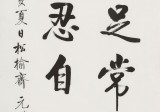 足常
忍自
夏日松榆齋元